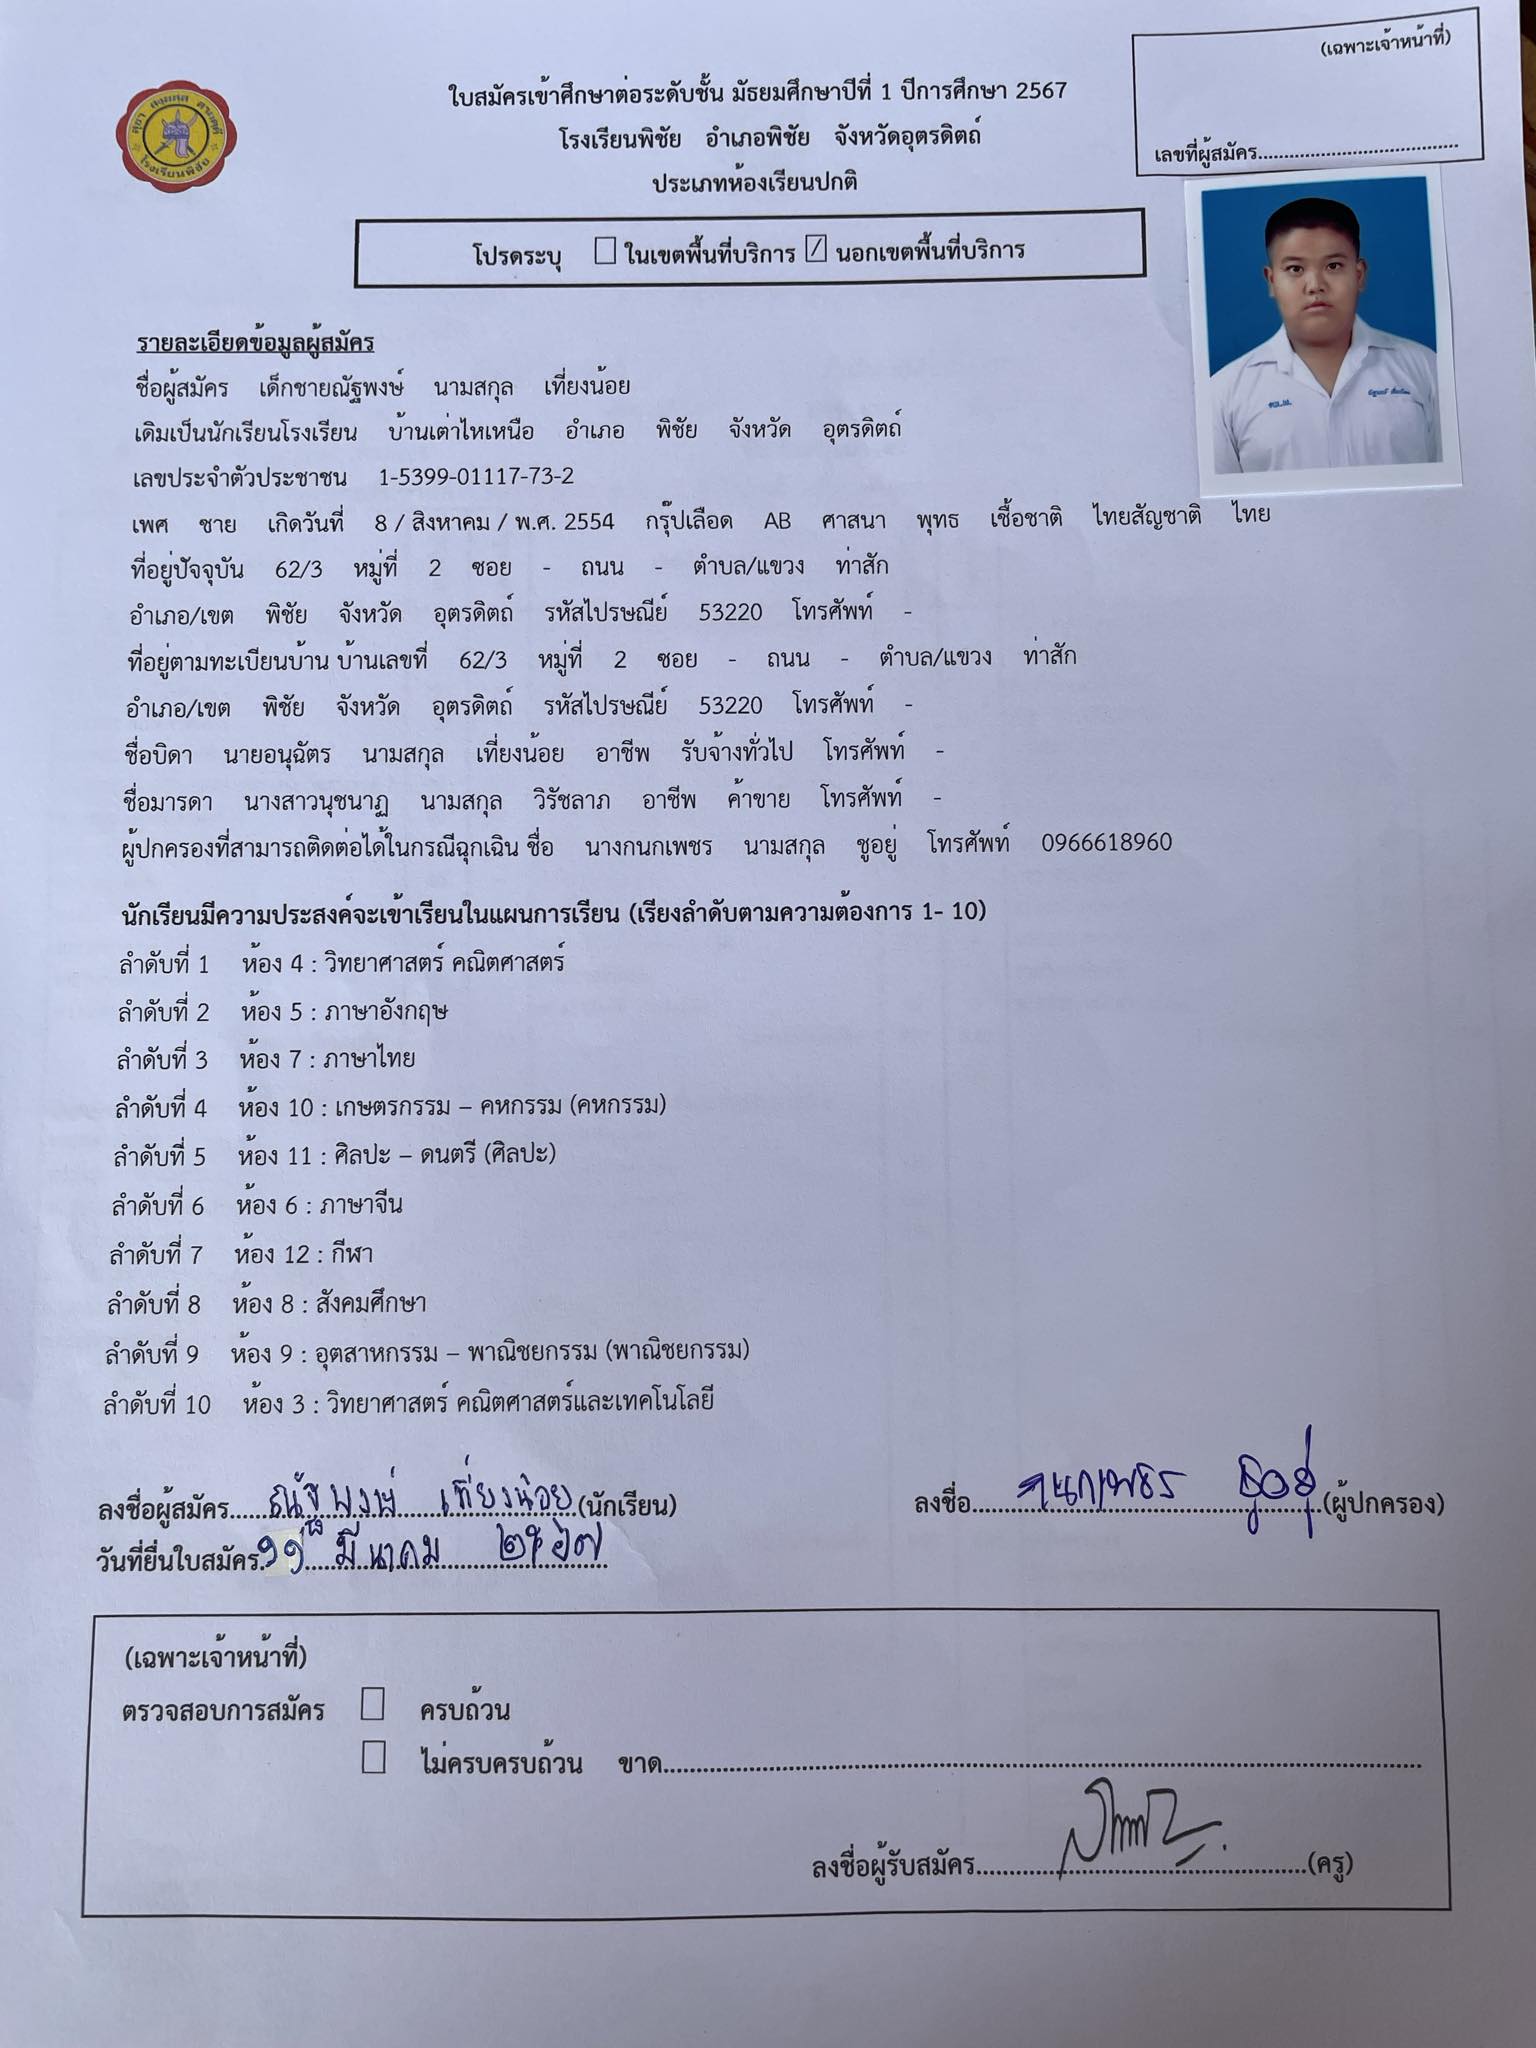 (เฉพาะเจ้าหน้าที่)
เลขที่ผู้สมัคร....................................
สุธา สงฺฆสฺส สามคฺคี
โรงเรียนพิชัย
ใบสมัครเข้าศึกษาต่อระดับชั้น มัธยมศึกษาปีที่ 1 ปีการศึกษา 2567
โรงเรียนพิชัย อำเภอพิชัย จังหวัดอุตรดิตถ์
ประเภทห้องเรียนปกติ
โปรดระบุ ☐ ในเขตพื้นที่บริการ ☑ นอกเขตพื้นที่บริการ
รายละเอียดข้อมูลผู้สมัคร
ชื่อผู้สมัคร เด็กชายณัฐพงษ์ นามสกุล เที่ยงน้อย
เดิมเป็นนักเรียนโรงเรียน บ้านเต่าไหเหนือ อำเภอ พิชัย จังหวัด อุตรดิตถ์
เลขประจำตัวประชาชน 1-5399-01117-73-2
เพศ ชาย เกิดวันที่ 8 / สิงหาคม / พ.ศ. 2554 กรุ๊ปเลือด AB ศาสนา พุทธ เชื้อชาติ ไทยสัญชาติ ไทย
ที่อยู่ปัจจุบัน 62/3 หมู่ที่ 2 ซอย - ถนน - ตำบล/แขวง ท่าสัก
อำเภอ/เขต พิชัย จังหวัด อุตรดิตถ์ รหัสไปรษณีย์ 53220 โทรศัพท์ -
ที่อยู่ตามทะเบียนบ้าน บ้านเลขที่ 62/3 หมู่ที่ 2 ซอย - ถนน - ตำบล/แขวง ท่าสัก
อำเภอ/เขต พิชัย จังหวัด อุตรดิตถ์ รหัสไปรษณีย์ 53220 โทรศัพท์ -
ชื่อบิดา นายอนุฉัตร นามสกุล เที่ยงน้อย อาชีพ รับจ้างทั่วไป โทรศัพท์ -
ชื่อมารดา นางสาวนุชนาฏ นามสกุล วิรัชลาภ อาชีพ ค้าขาย โทรศัพท์ -
ผู้ปกครองที่สามารถติดต่อได้ในกรณีฉุกเฉิน ชื่อ นางกนกเพชร นามสกุล ชูอยู่ โทรศัพท์ 0966618960
นักเรียนมีความประสงค์จะเข้าเรียนในแผนการเรียน (เรียงลำดับตามความต้องการ 1- 10)
ลำดับที่ 1 ห้อง 4 : วิทยาศาสตร์ คณิตศาสตร์
ลำดับที่ 2 ห้อง 5 : ภาษาอังกฤษ
ลำดับที่ 3 ห้อง 7 : ภาษาไทย
ลำดับที่ 4 ห้อง 10 : เกษตรกรรม – คหกรรม (คหกรรม)
ลำดับที่ 5 ห้อง 11 : ศิลปะ – ดนตรี (ศิลปะ)
ลำดับที่ 6 ห้อง 6 : ภาษาจีน
ลำดับที่ 7 ห้อง 12 : กีฬา
ลำดับที่ 8 ห้อง 8 : สังคมศึกษา
ลำดับที่ 9 ห้อง 9 : อุตสาหกรรม – พาณิชยกรรม (พาณิชยกรรม)
ลำดับที่ 10 ห้อง 3 : วิทยาศาสตร์ คณิตศาสตร์และเทคโนโลยี
ลงชื่อผู้สมัคร ณัฐพงษ์ เที่ยงน้อย (นักเรียน) ลงชื่อ กนกเพชร ชูอยู่ (ผู้ปกครอง)
วันที่ยื่นใบสมัคร ๑๑ มีนาคม ๒๕๖๗
(เฉพาะเจ้าหน้าที่)
ตรวจสอบการสมัคร ☐ ครบถ้วน
☐ ไม่ครบครบถ้วน ขาด....................................
ลงชื่อผู้รับสมัคร....................................(ครู)